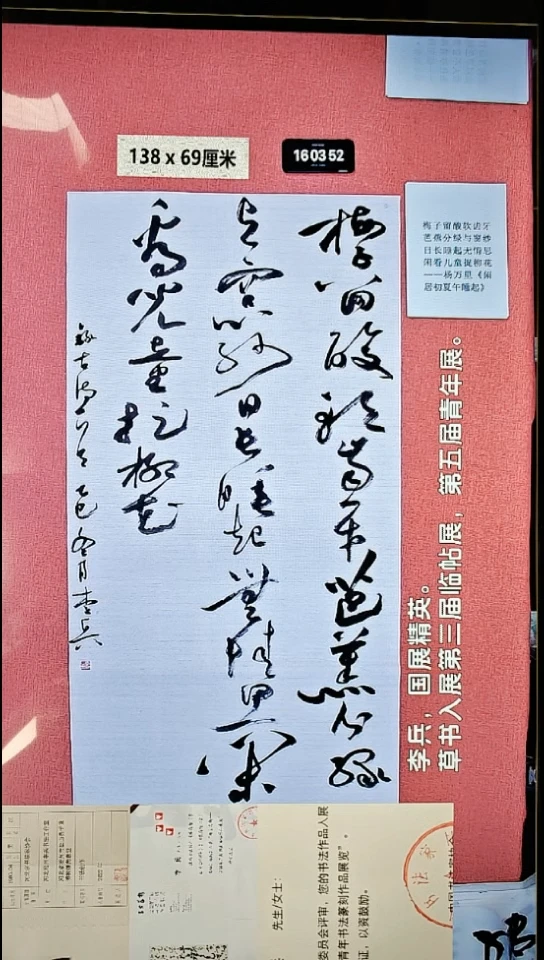 138 x 69厘米
160352
梅子留酸软齿牙
芭蕉分绿与窗纱
日长睡起无情思
闲看儿童捉柳花
——杨万里《闲
居初夏午睡起》
梅子留酸軟齒牙芭蕉分綠
与窗紗日長睡起無情思閑
看兒童捉柳花
乙巳冬月李兵
李兵，国展精英。
草书入展第三届临帖展，第五届青年展。
先生/女士：
委员会评审，您的书法作品入展
青年书法篆刻作品展览”。
证，以资鼓励。